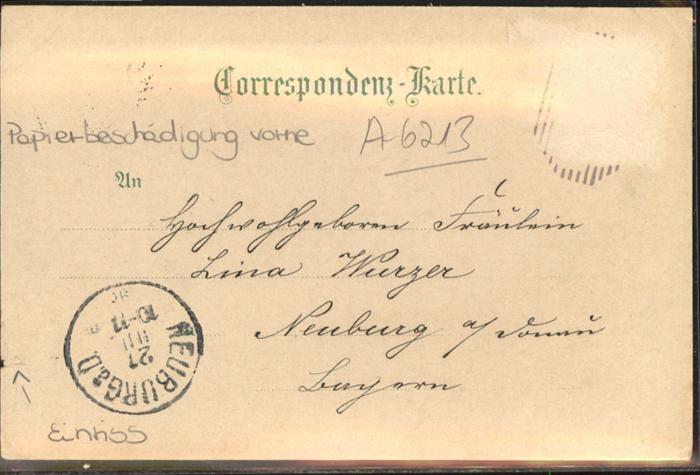 Correspondenz-Karte.
Papierbeschädigung vorne
A-6213
An
Hochwohlgeboren Fräulein
Lina Wurzer
Neuburg a/Donau
Bayern
NEUBURG a.D.
27
10-11
Einriss